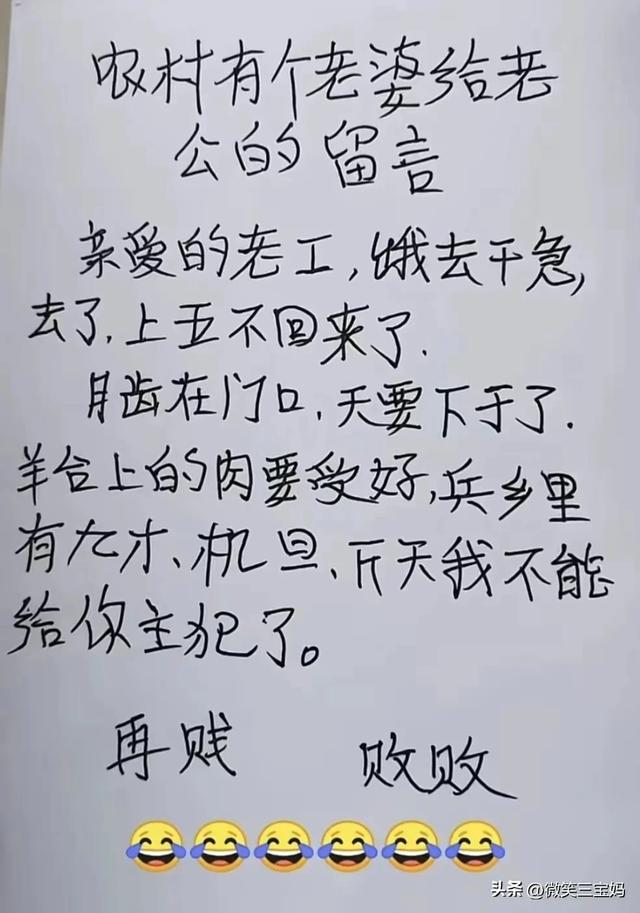 农村有个老婆给老
公的留言
亲爱的老工,饿去干急,
去了.上五不回来了.
月齿在门口,天要下于了.
羊台上的肉要受好,兵乡里
有九才、机旦、斤天我不能
给你主犯了。
再贱 败败
😂😂😂😂😂😂
头条 @微笑三宝妈